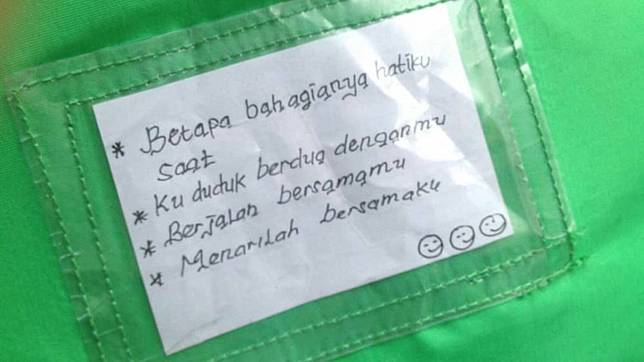 * Betapa bahagianya hatiku
saat
* Ku duduk berdua denganmu
* Berjalan bersamamu
* Menarilah bersamaku